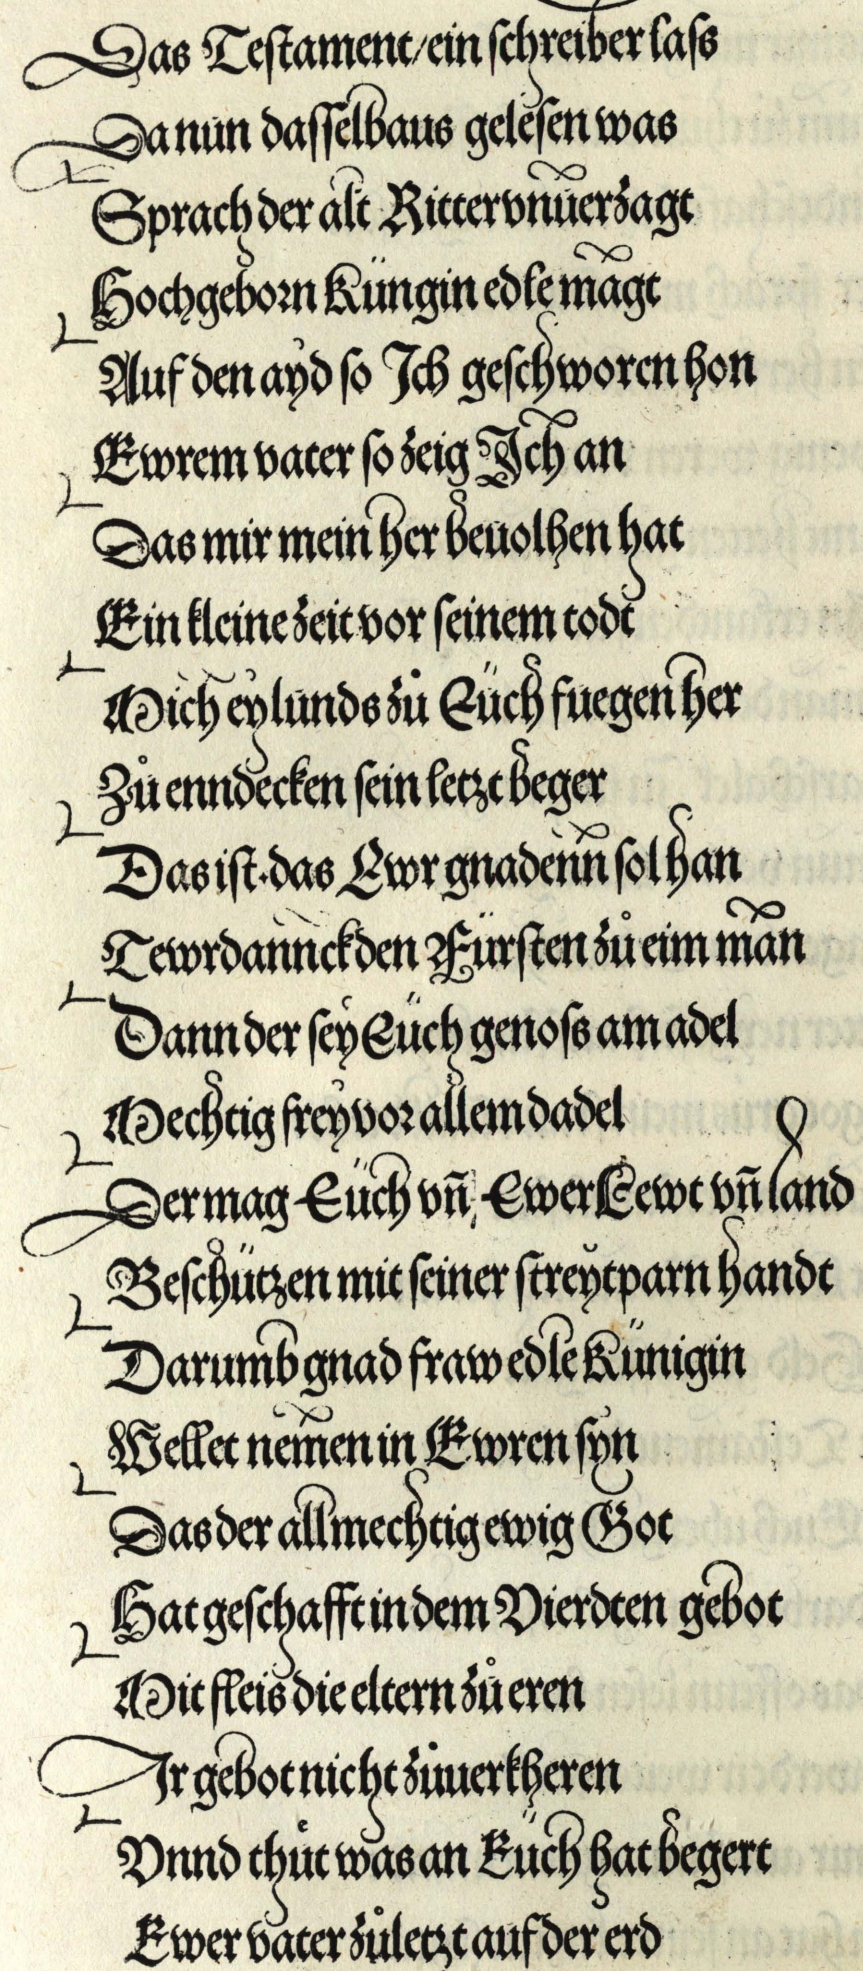 Das Testament/ein schreiber lass
Da nun dasselbaus gelesen was
Sprach der alt Ritter vnuerzagt
Hochgeborn Küngin edle magt
Auf den ayd so Ich geschworen hon
Ewrem vater so zeig Ich an
Das mir mein her beuolhen hat
Ein kleine zeit vor seinem todt
Mich eylunds zů Eüch fuegen her
Zů enndecken sein letzt beger
Das ist. das Ewr gnadenn sol han
Tewrdannck den Fürsten zů eim man
Dann der sey Eüch genoss am adel
Mechtig frey vor allem dadel
Der mag Eüch vn̄ Ewer Lewt vn̄ land
Beschützen mit seiner streytparn handt
Darumb gnad fraw edle Künigin
Wellet nemen in Ewren syn
Das der allmechtig ewig Got
Hat geschafft in dem Vierdten gebot
Mit fleis die eltern zů eren
Ir gebot nicht zůuerkheren
Vnnd thůt was an Eüch hat begert
Ewer vater zůletzt auf der erd